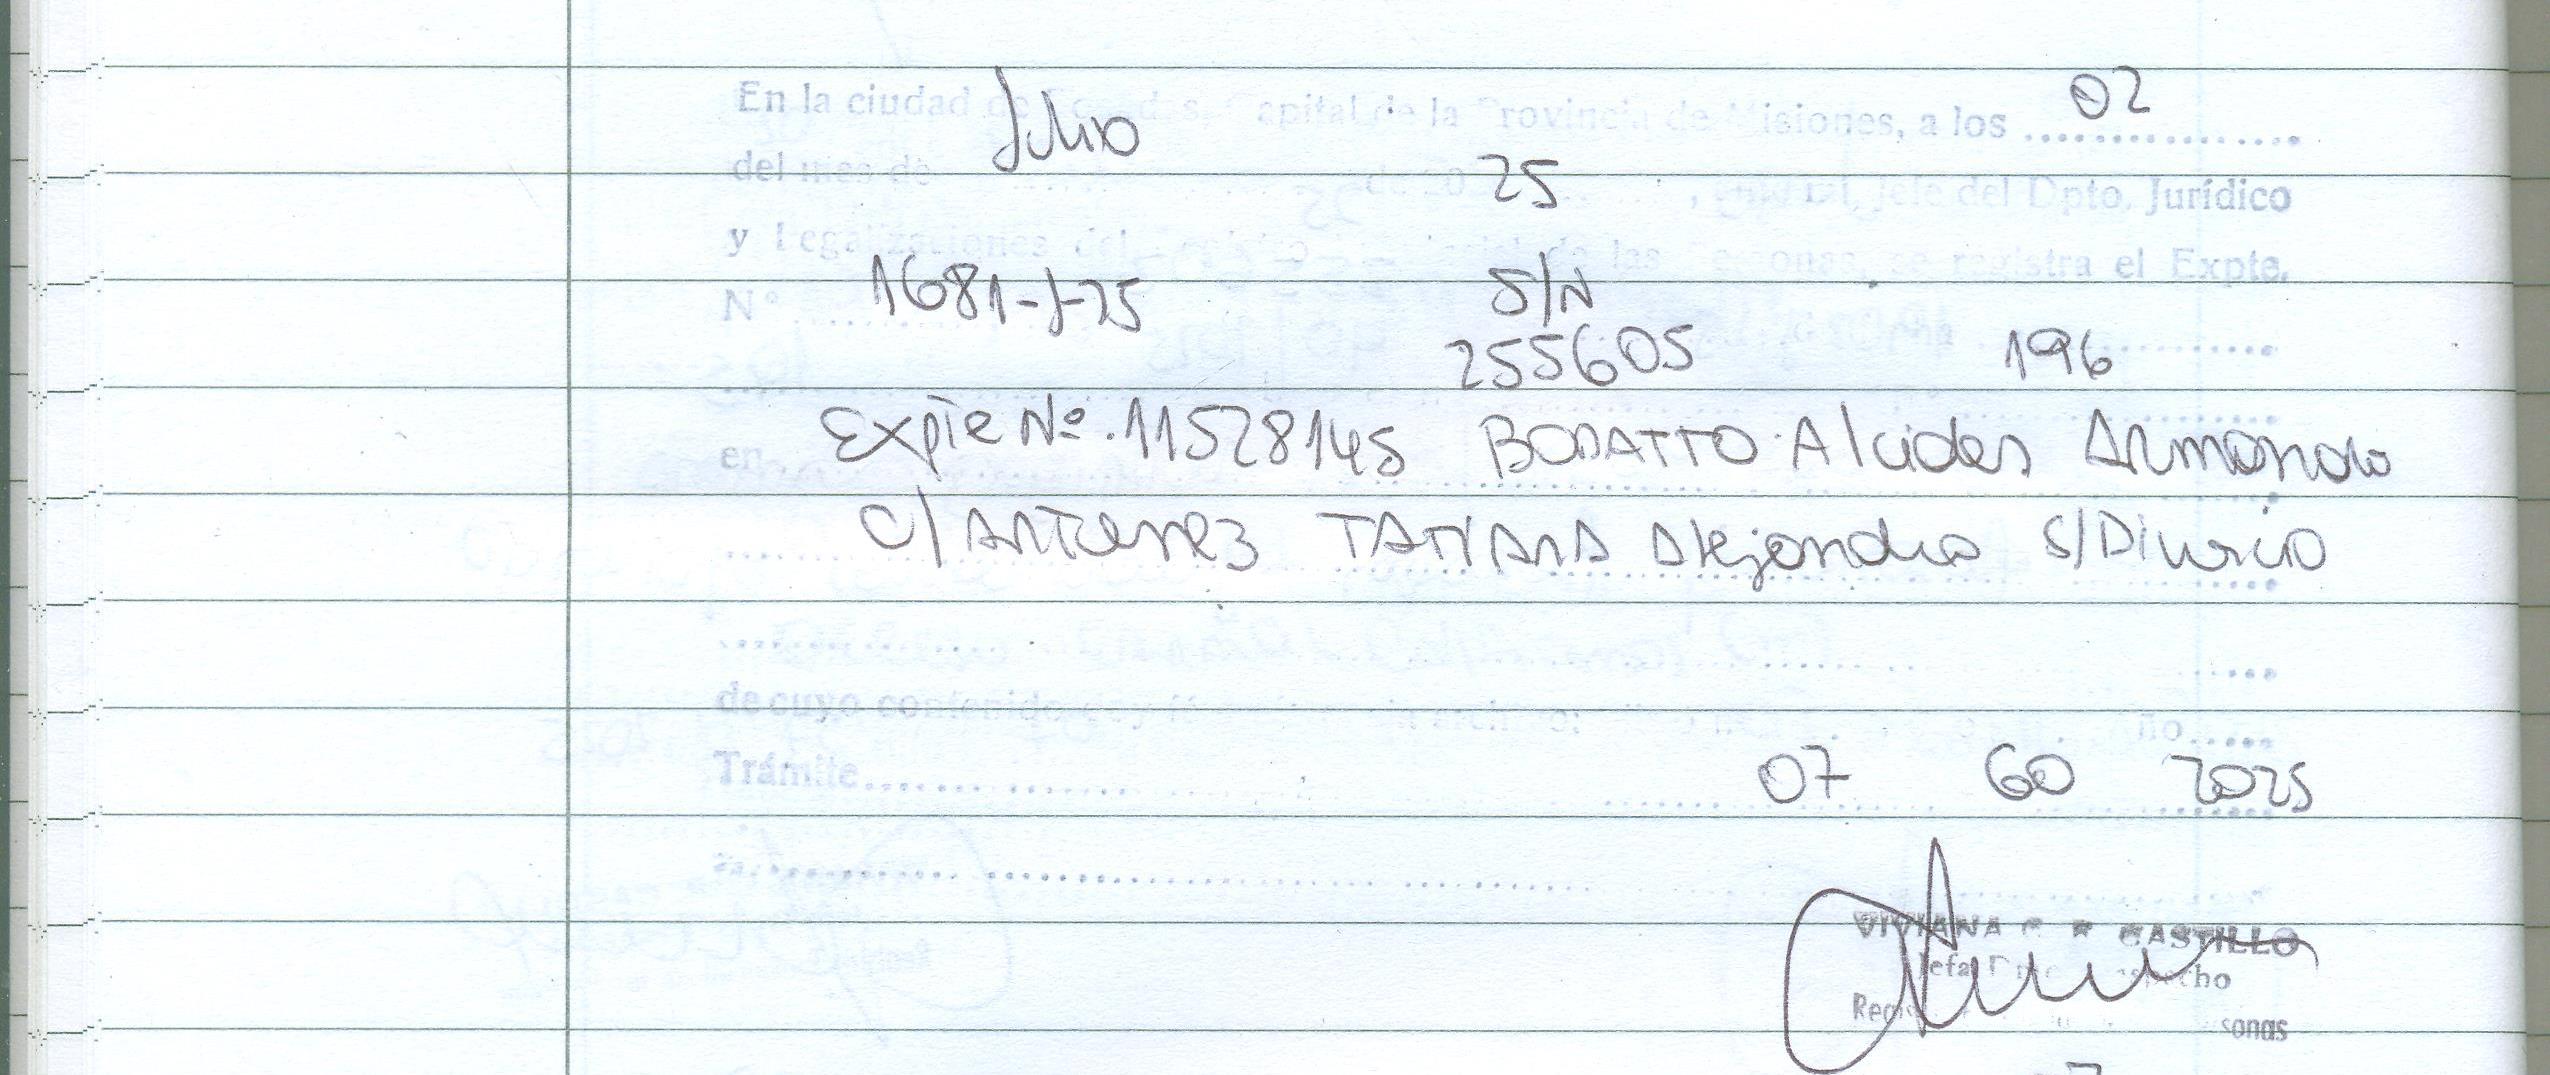 En la ciudad de Posadas, Capital de la Provincia de Misiones, a los 02
del mes de Julio de 20 25, Jefe del Dpto. Jurídico
y Legalizaciones del de las personas, se registra el Expte.
N° 1681-J-25 S/N
255605 196
en Expte Nº. 11528145 BODATTO Alcides Armando
C/ ANTUNEZ TATIANA Alejandra S/Divorcio
de cuyo contenido doy fé archivo: Año
Trámite 07 60 2025
VIVIANA CASTILLO
Jefa Despacho
sonas